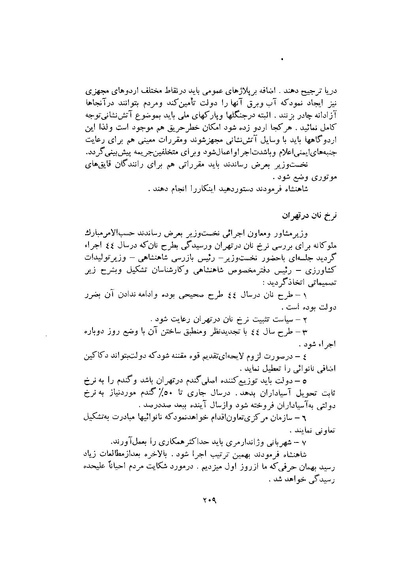 دریا ترجیح دهند . اضافه بر پلاژهای عمومی باید در نقاط مختلف اردوهای مجهزی
نیز ایجاد نمود که آب و برق آنها را دولت تأمین کند و مردم بتوانند در آنجاها
آزادانه چادر بزنند . البته در جنگلها و پارکهای ملی باید بموضوع آتش نشانی توجه
کامل نمائید . هر کجا اردو زده شود امکان خطر حریق هم موجود است و لذا این
اردوگاهها باید با وسایل آتش نشانی مجهز شوند و مقررات معینی هم برای رعایت
جنبه های ایمنی اعلام و باشدت اجرا و اعمال شود و برای متخلفین جریمه پیش بینی گردد.
نخست وزیر بعرض رساندند باید مقرراتی هم برای رانندگان قایق های
موتوری وضع شود .
شاهنشاه فرمودند دستور دهید اینکار را انجام دهند .
نرخ نان در تهران
وزیر مشاور و معاون اجرائی نخست وزیر بعرض رساندند حسب الامر مبارک
ملوکانه برای بررسی نرخ نان در تهران و رسیدگی بطرح نان که در سال ٤٤ اجراء
گردید جلسه ای با حضور نخست وزیر - رئیس بازرسی شاهنشاهی - وزیر تولیدات
کشاورزی - رئیس دفتر مخصوص شاهنشاهی و کارشناسان تشکیل و بشرح زیر
تصمیماتی اتخاذ گردید :
۱ - طرح نان در سال ٤٤ طرح صحیحی بوده و ادامه ندادن آن بضرر
دولت بوده است .
۲ - سیاست تثبیت نرخ نان در تهران رعایت شود .
۳ - طرح سال ٤٤ با تجدیدنظر و منطبق ساختن آن با وضع روز دوباره
اجراء شود .
٤ - در صورت لزوم لایحه ای تقدیم قوه مقننه شود که دولت بتواند دکاکین
اضافی نانوائی را تعطیل نماید .
۵ - دولت باید توزیع کننده اصلی گندم در تهران باشد و گندم را به نرخ
ثابت تحویل آسیاداران بدهد . در سال جاری تا ۵۰٪ گندم مورد نیاز به نرخ
دولتی به آسیاداران فروخته شود و از سال آینده بیعد صد در صد .
٦ - سازمان مرکزی تعاون اقدام خواهد نمود که نانوائیها مبادرت به تشکیل
تعاونی نمایند .
۷ - شهربانی و ژاندارمری باید حداکثر همکاری را بعمل آورند.
شاهنشاه فرمودند بهمین ترتیب اجرا شود . بالاخره بعد از مطالعات زیاد
رسید بهمان حرفی که ما از روز اول میزدیم . در مورد شکایت مردم احیاناً علیحده
رسیدگی خواهد شد .
۲۰۹